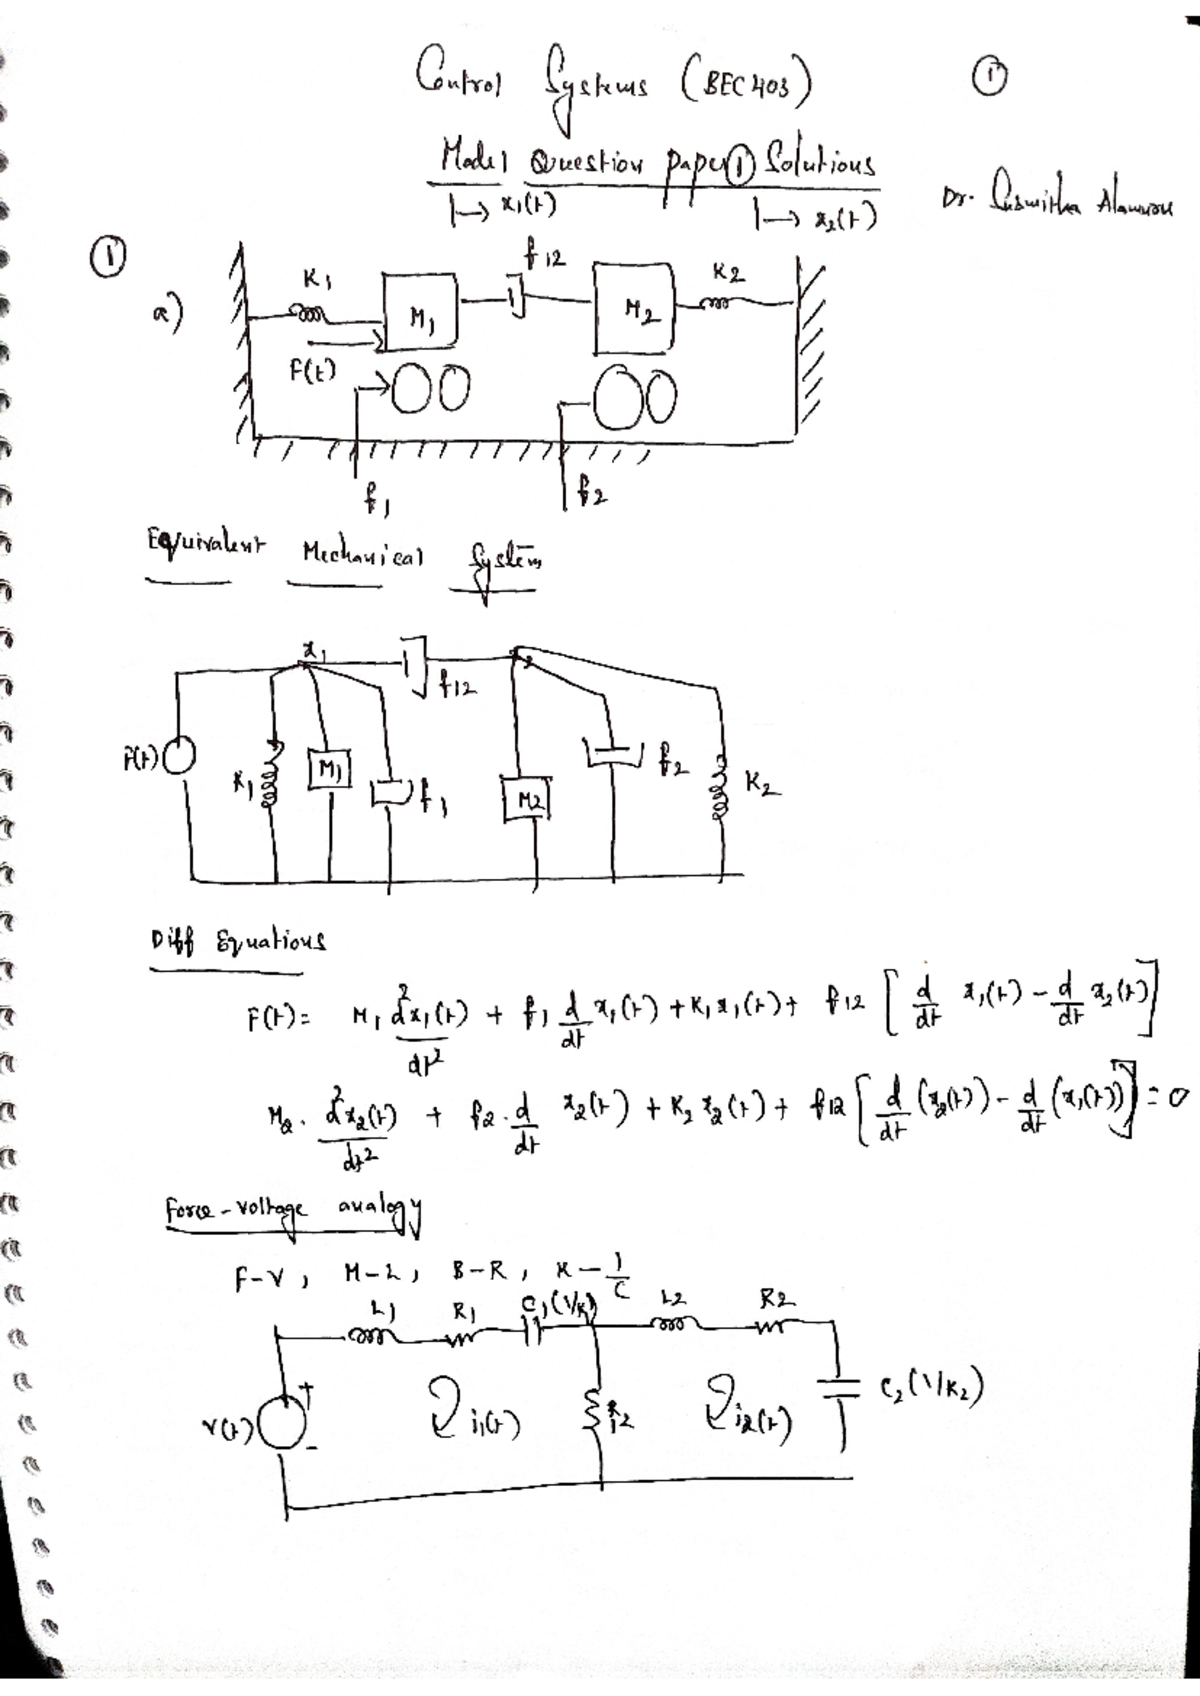 Control Systems (BEC403)
①
Model Question paper ① Solutions
Dr. Susmitha Alamuru
x₁(t)
x₂(t)
①
a)
K₁
M₁
f12
M₂
K₂
F(t)
f₁
f₂
Equivalent Mechanical System
x₁
f12
x₂
F(t)
K₁
M₁
f₁
M₂
f₂
K₂
Diff Equations
F(t) = M₁ d²x₁(t)/dt² + f₁ d/dt x₁(t) + K₁x₁(t) + f12 [d/dt x₁(t) - d/dt x₂(t)]
M₂. d²x₂(t)/dt² + f₂. d/dt x₂(t) + K₂ x₂(t) + f12 [d/dt (x₂(t)) - d/dt (x₁(t))] = 0
Force - Voltage analogy
F-V, M-L, B-R, K - 1/C
L₁
R₁
C₁(1/K₁)
L₂
R₂
v(t)
+
-
i₁(t)
R12
i₂(t)
C₂(1/K₂)